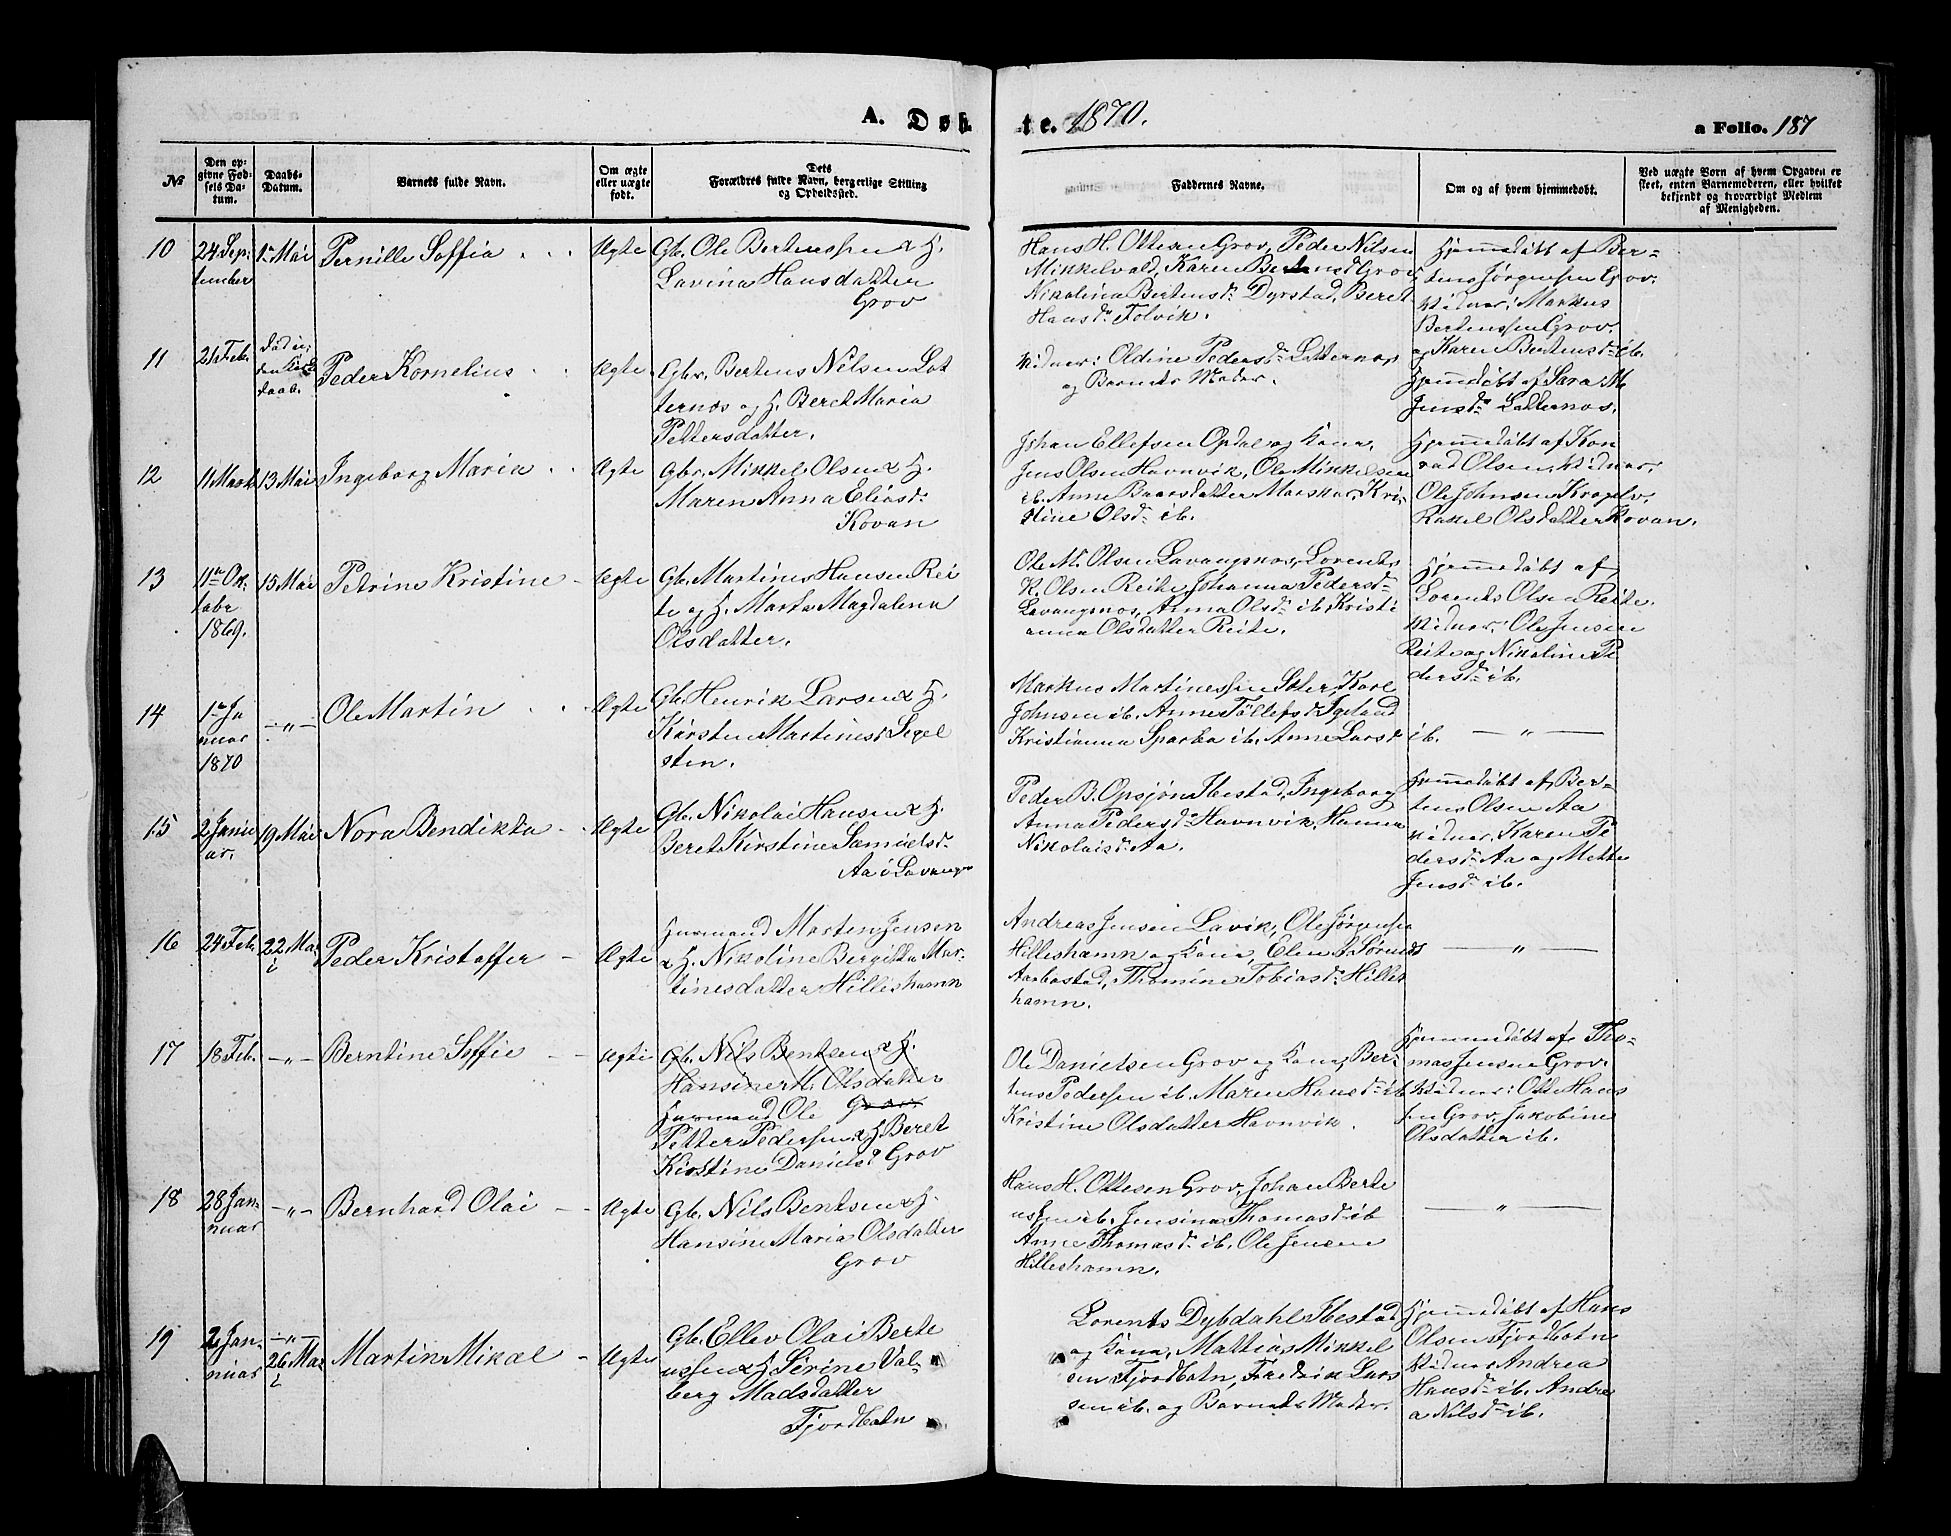 A. Døbte. 1870.
a Folio. 187
№
Den op-
givne Fød-
sels Da-
tum.
Daabs-
Datum.
Barnets fulde Navn.
Om ægte
eller uægte
født.
Dets
Forældres fulde Navn, borgerlige Stilling
og Opholdssted.
Faddernes Navne.
Om og af hvem hjemmedøbt.
Ved uægte Børn af hvem Opgaven er
skeet, enten Barnemoderen, eller hvilket
bekjendt og troværdigt Medlem
af Menigheden.
10
24 Sep-
tember
1ste Mai
Pernille Soffia
Ægte
Gb. Ole Bertenssen & H.
Lavina Hansdatter
Grov
Hans H. Ottesen Grov, Peder Nilsen
Mikkelvold, Karen Bertensd Grov
Nikolina Bertensd. Dyrstad, Beret
Hansd. Tolvik.
Hjemmedøbt af Ber-
tens Jørgensen Grov.
Vidner: Markus
Bertenssen Grov.
og Karen Bertensd. ib.
11
21 Feb.
død u-
den Kirke
daab.
Peder Kornelius
Ægte
Gbr. Bertens Nilsen Lot
ternes og H. Beret Maria
Pettersdatter.
Vidner: Oldine Pedersd. Lotternes
og Barnets Moder.
Hjemmedøbt af Sara M.
Jensd. Lotternes.
12
11 Marts
13 Mai
Ingeborg Maria
Ægte
Gbr. Mikkel Olsen & H.
Maren Anna Eliasd.
Kovan
Johan Ellefsen Opdal og Kona,
Jens Olsen Havnvik, Ole Mikkelsen
ib. Anne Baarsdatter Marskar, Kri-
stine Olsd. ib.
Hjemmedøbt af Kon
rad Olsen, Vidner,
Ole Johnsen Kragelv.
Rakel Olsdatter Kovan.
13
11te Ok-
tobr
1869.
15 Mai
Petrine Kristine
Ægte
Gb. Martines Hansen Rei
te og H. Marta Magdalena
Olsdatter.
Ole M. Olsen Lavangsnes, Lorents
K. Olsen Reite, Johanna Pedersd.
Lavangsnes, Anna Olsd. ib. Kristi
anna Olsdatter Reite.
Hjemmedøbt af
Lorents Olsen Reite.
Vidner: Ole Jensen
Reite og Nikoline Pe
dersd. ib.
14
1ste Ja
nuar
1870
—„—
Ole Martin
Ægte
Gb. Henrik Larsen & H.
Kirsten Martinesd. Segel
sten.
Markus Martinessen Sæter, Karl
Johnsen ib. Anne Tollefsd.
Kristianna Sparbo ib. Anne Larsd
ib. —„—
15
2 Janu
ar.
19 Mai
Nora Bendikta
Ægte
Gb. Nikolai Hansen & H.
Beret Kirstine Samuelsd.
Aa i Lavangen
Peder B. Opsjøn Ibestad, Ingeborg
Anna Pedersd. Havnvik, Hanna
Nikolaisd. Aa.
Hjemmedøbt af Ber-
tens Olsen Aa
Vidner, Karen Pe
dersd. Aa og Mette
Jensd. ib.
16
24 Feb.
22 Ma
i
Peder Kristoffer
Ægte
Husmand Morten Jensen
& H. Nikoline Bergitta Mar-
tinesdatter Hilleshamn
Andreas Jensen Lavik, Ole Jørgensen
Hilleshamn og Kona, Elen Sørensd
Aarbostad, Thomine Tobiasd. Hilles
hamn.
—„—
17
18 Feb.
—„—
Berntine Soffie
Ægte
Gb. Nils Bentsen & H.
Hansine M. Olsdatter
Grov.
Husmand Ole
Petter Pedersen & H. Beret
Kirstine Danielsd Grov
Ole Danielsen Grov og Kona, Ber-
tens Pedersen ib. Maren Hansd. ib.
Kristine Olsdatter Havnvik.
Hjemmedøbt af Tho-
mas Jensen Grov.
Vidner: Otte Hans
sen Grov, Jakobine
Olsdatter ib.
18
28 Jan-
nuar
—„—
Bernhard Olai
Ægte
Gb. Nils Bentsen & H.
Hansine Maria Olsdatter
Grov
Hans H. Ottesen Grov, Johan Berte
ussen ib. Jensina Thomasd. ib
Anne Thomasd. ib. Ole Jensen
Hilleshamn.
—„—
19
2 Jan-
nuar
—„—
26 Ma
i
Martin Mikal
Ægte
Gb. Ellev Olai Berte
ussen & H. Sirine Val-
berg Madsdatter
Fjordbotn
Lorents Dybdahl Ibestad
og Kona, Mattias Mikkel
sen Fjordbotn, Fredrik Lars
sen ib. og Barnets Moder.
Hjemmedøbt af Hans
Olsen Fjordbotn
Vidner: Andrea
Hansd. ib. Andre
a Nilsd. ib.